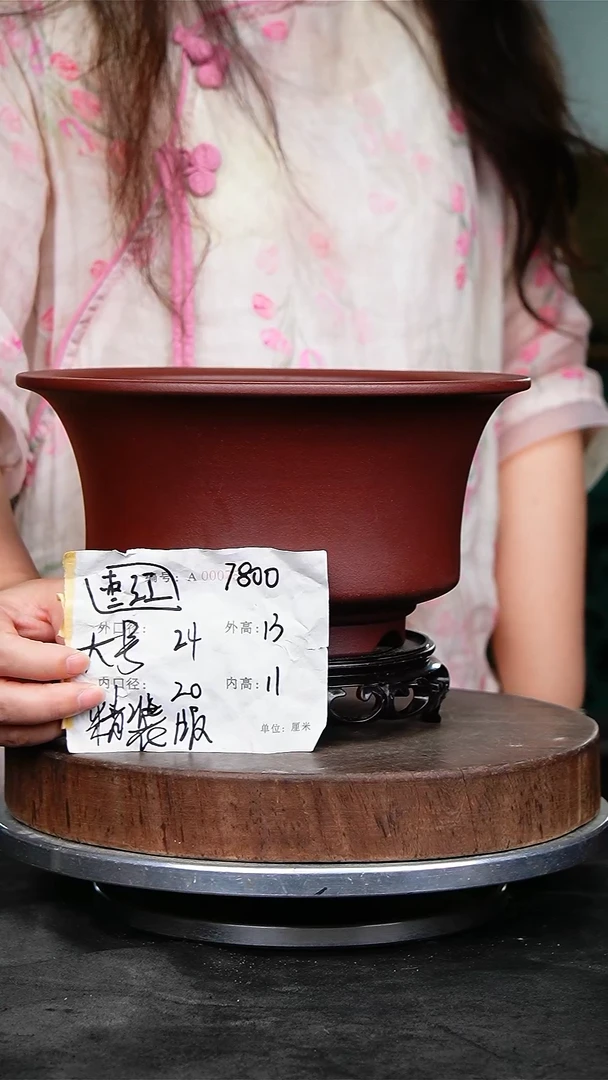 枣红 编号：A 000 7800
外口径： 24 外高：13
大号
内口径： 20 内高：11
精装版
单位：厘米